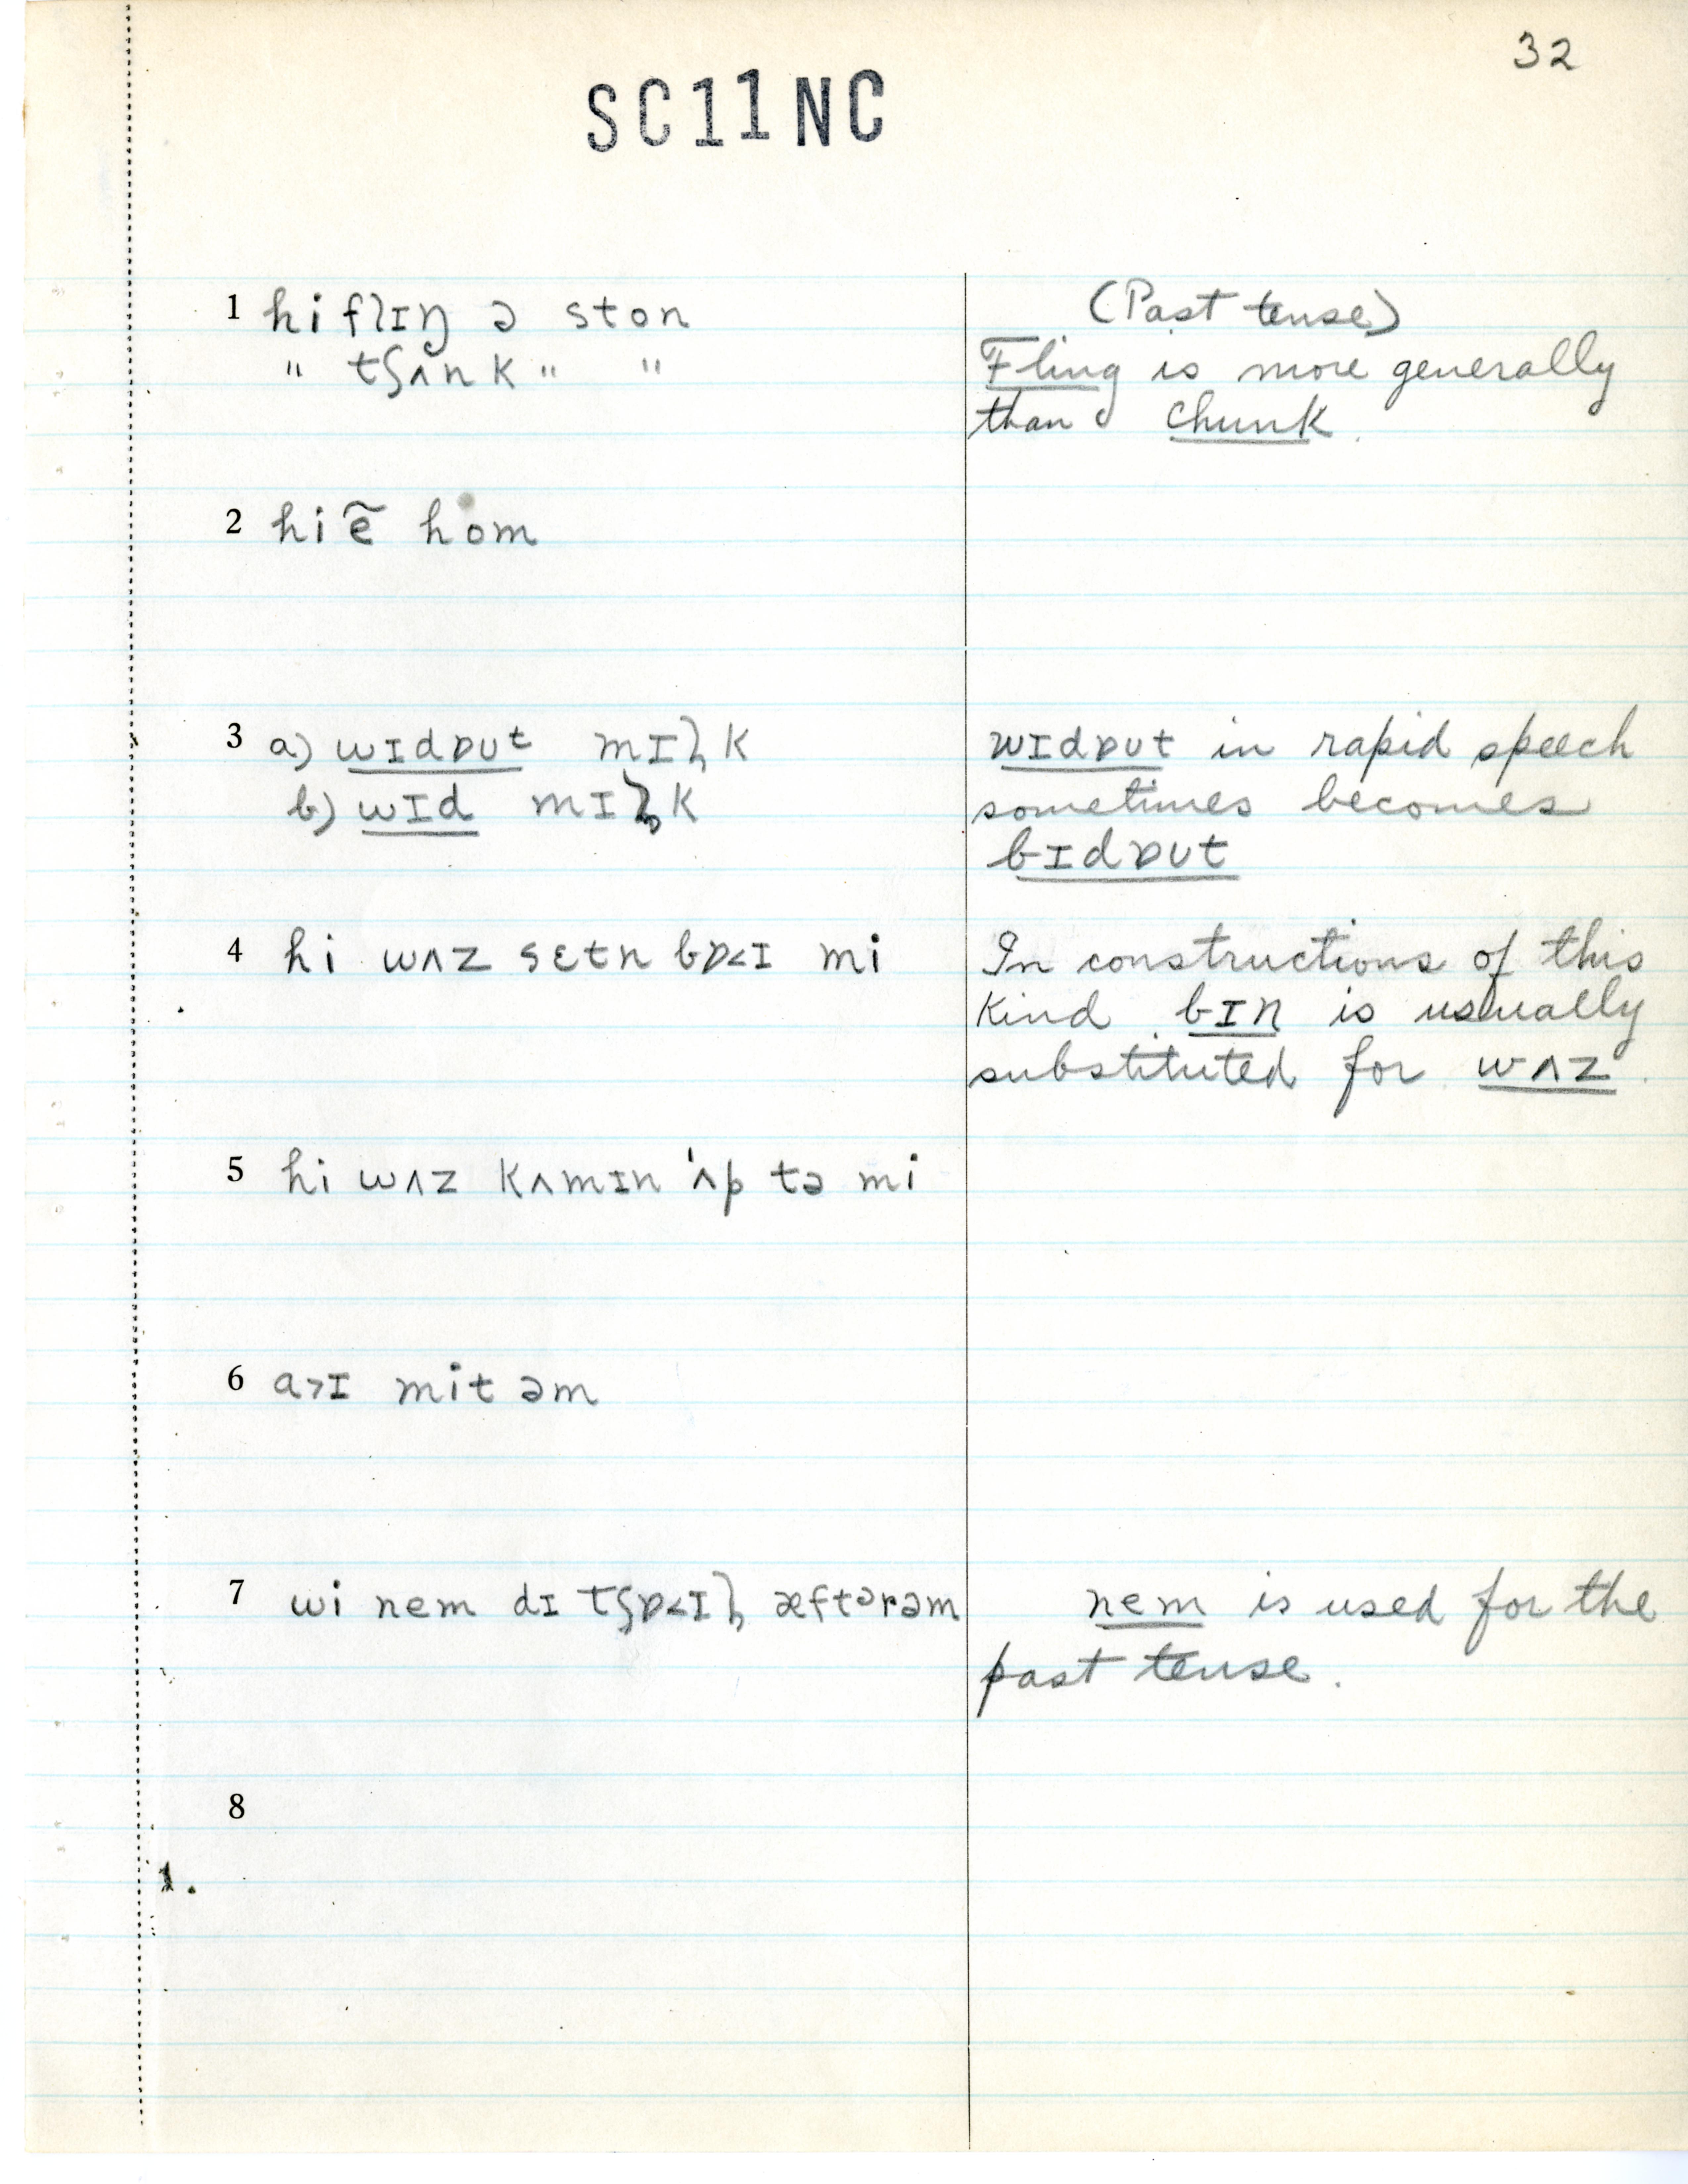 32
SC11NC
1 hi flɪŋ ə ston
" tʃʌnk " "
(Past tense)
Fling is more generally
than chunk.
2 hi ẽ hom
3 a) wɪdɒʊt mɪɫk
b) wɪd mɪɫk
wɪdɒʊt in rapid speech
sometimes becomes
bɪdɒʊt
4 hi wʌz sɛtn bɒ˂ɪ mi
In constructions of this
kind bɪn is usually
substituted for wʌz.
5 hi wʌz kʌmɪn ˈʌp tə mi
6 a˃ɪ mit əm
7 wi nem dɪ tʃɒ˂ɪɫ æftərəm
nem is used for the
past tense.
8
1.